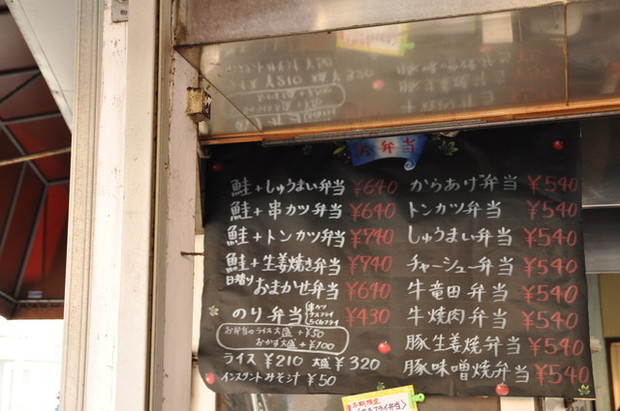 お弁当
鮭+しゅうまい弁当 ¥640
鮭+串カツ弁当 ¥640
鮭+トンカツ弁当 ¥740
鮭+生姜焼き弁当 ¥740
日替り おまかせ弁当 ¥640
のり弁当 ¥430
お弁当のライス大盛+¥50
おかず大盛+¥100
ライス ¥210 大盛 ¥320
インスタントみそ汁 ¥50
からあげ弁当 ¥540
トンカツ弁当 ¥540
しゅうまい弁当 ¥540
チャーシュー弁当 ¥540
牛竜田弁当 ¥540
牛焼肉弁当 ¥540
豚生姜焼弁当 ¥540
豚味噌焼弁当 ¥540